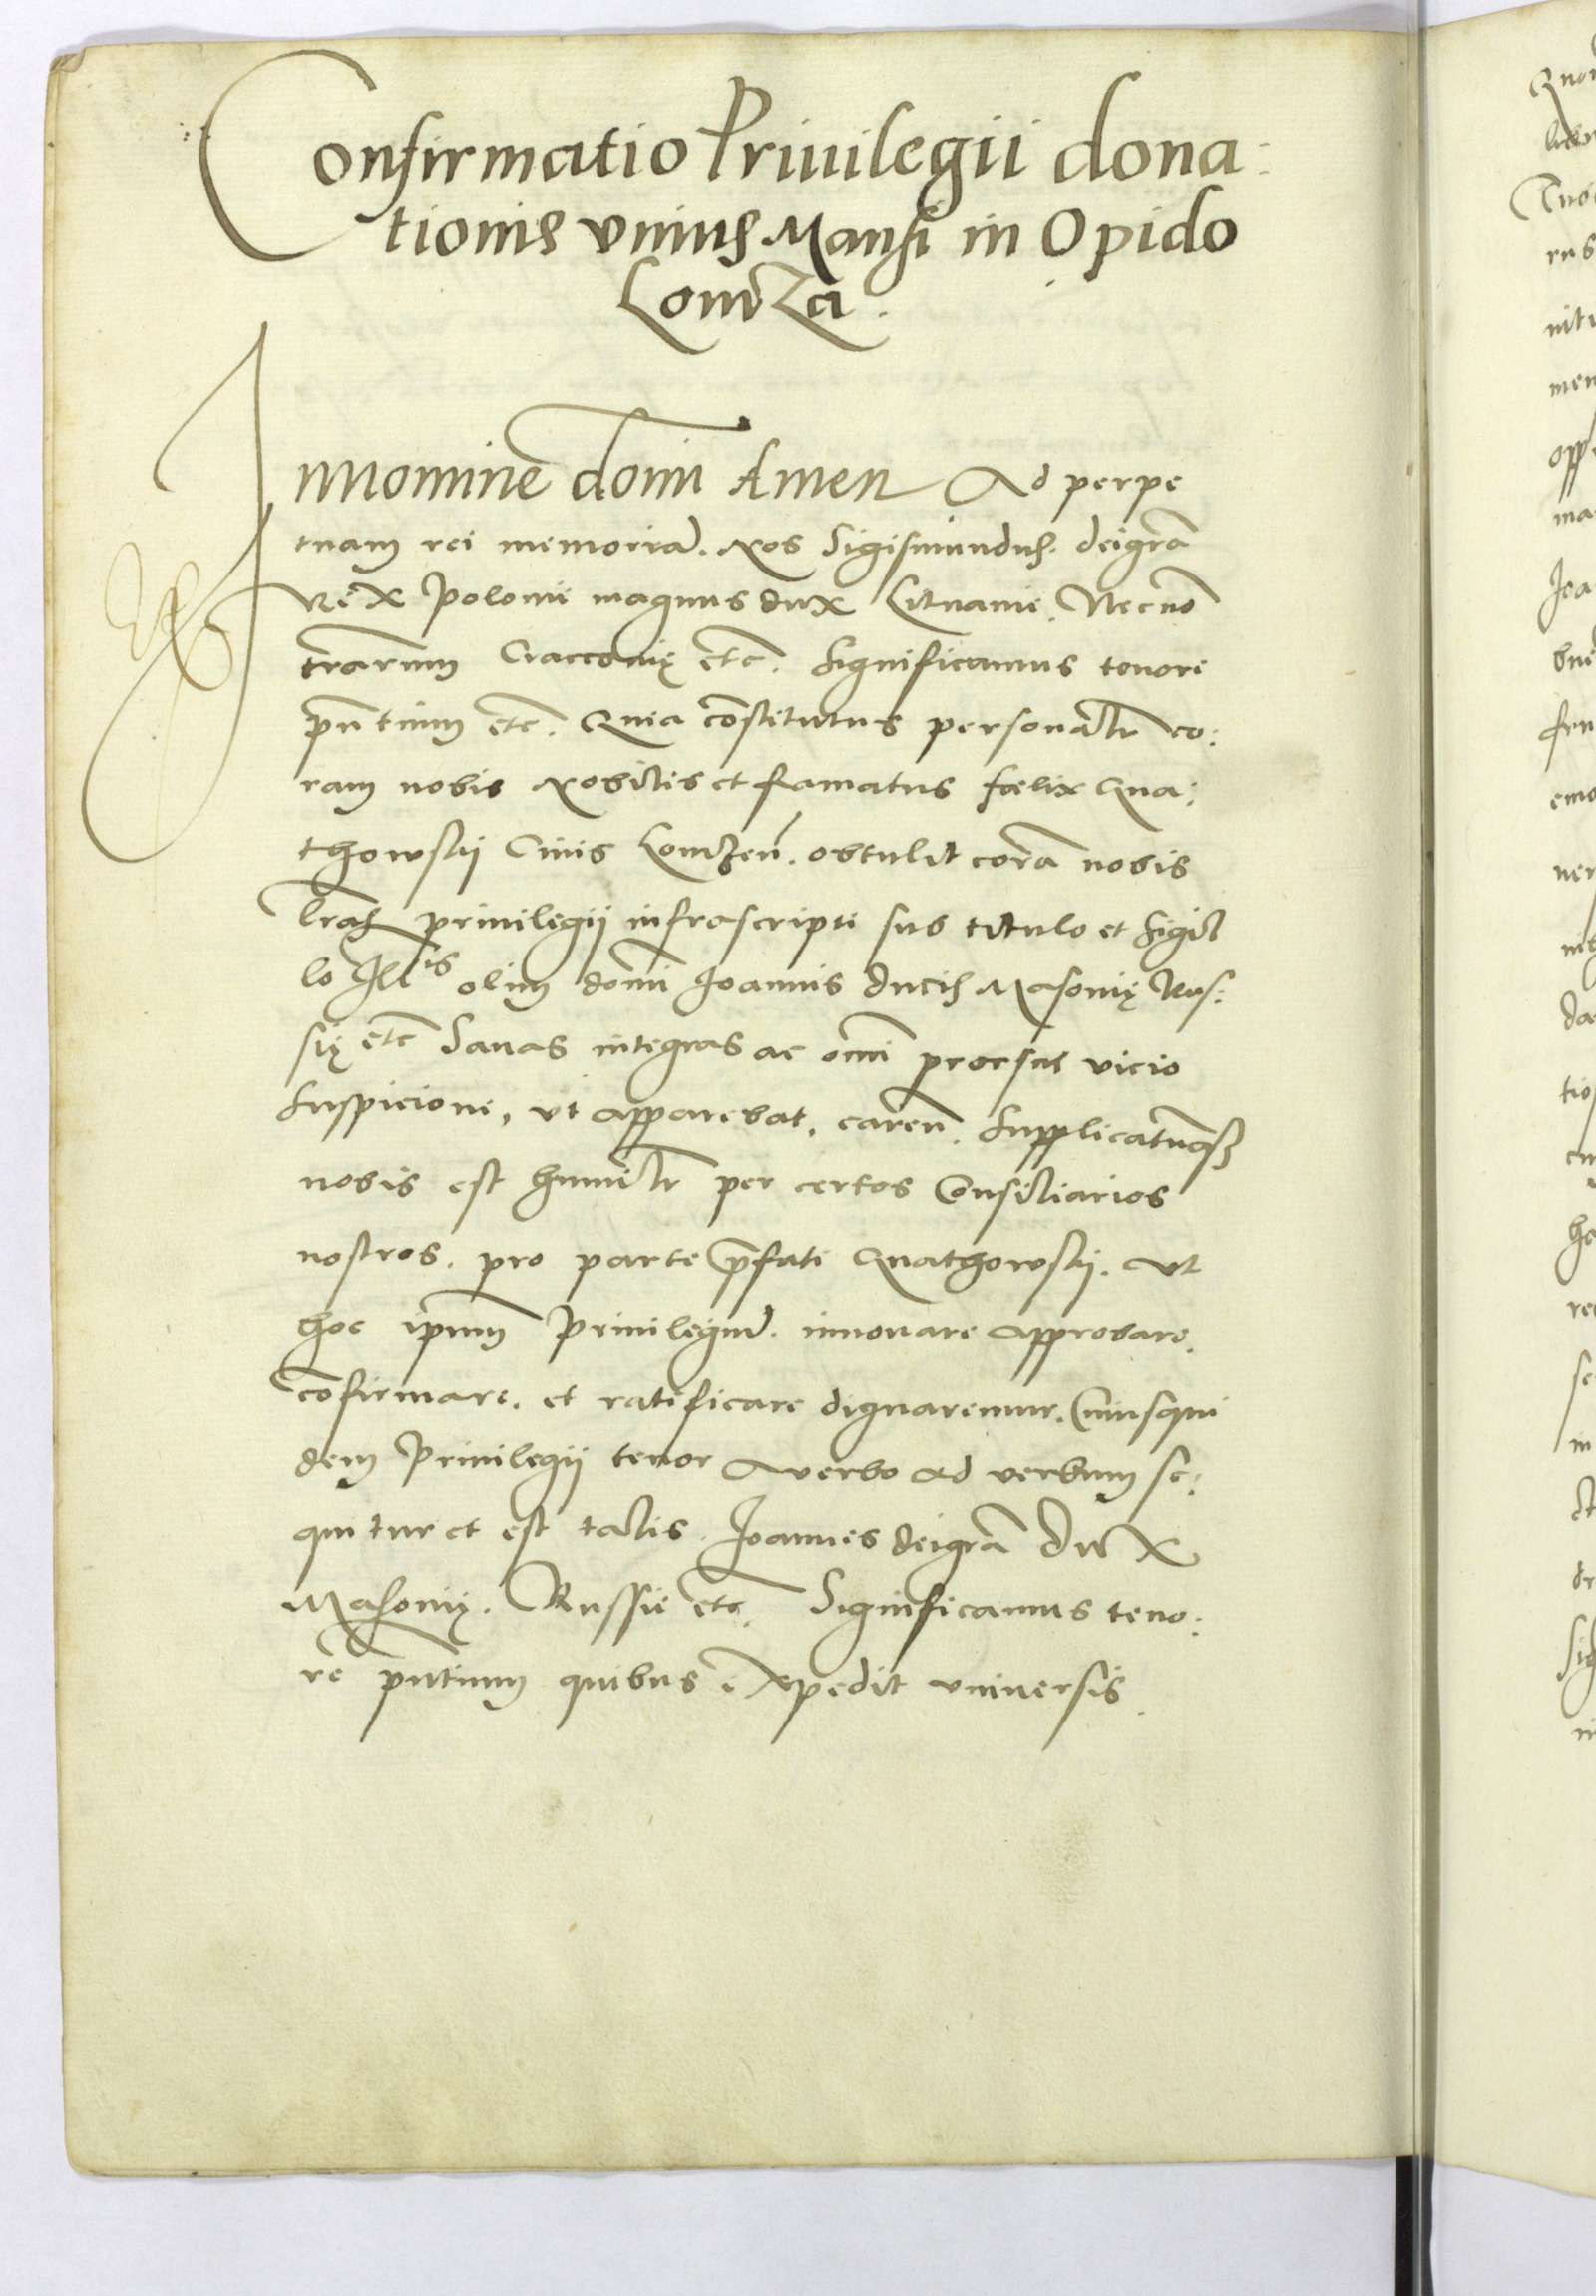 Confirmatio Priuilegii dona-
tionis vnius Mansi in Opido
Lomza.
In nomine dom̄i Amen Ad perpe
tuam rei memoriā. Nos Sigismundus. dei grā
Rex Poloniȩ magnus dux Lituanie. Necnō
trarum Cracconiȩ etc. significamus tenore
pn̄tium etc. Quia cōstitutus personalr̄ co:
ram nobis Nobilis et famatus fœlix Qua:
thowskij Ciuis Lomzeñ. obtulit corā nobis
lrās priuilegij infrascripti sub titulo et sigil
lo Illis olim dom̄i Joannis Ducis Masoniȩ Rus:
siȩ etc Sanas integras ac om̄i prorsus vicio
suspicione, vt apparebat, careñ. Supplicatūqȝ
nobis est humilr̄ per certos Consiliarios
nostros. pro parte p̄fati Quathowskij. vt
hoc ip̄um Priuilegiū. innouare approbare.
cōfirmare. et ratificare dignaremur. Cuiusqui
dem Priuilegij tenor a verbo ad verbum se:
quitur et est talis. Joannes dei grā Dux
Masoniȩ. Russiȩ etc. Significamus teno:
re pn̄tium quibus expedit vniuersis.